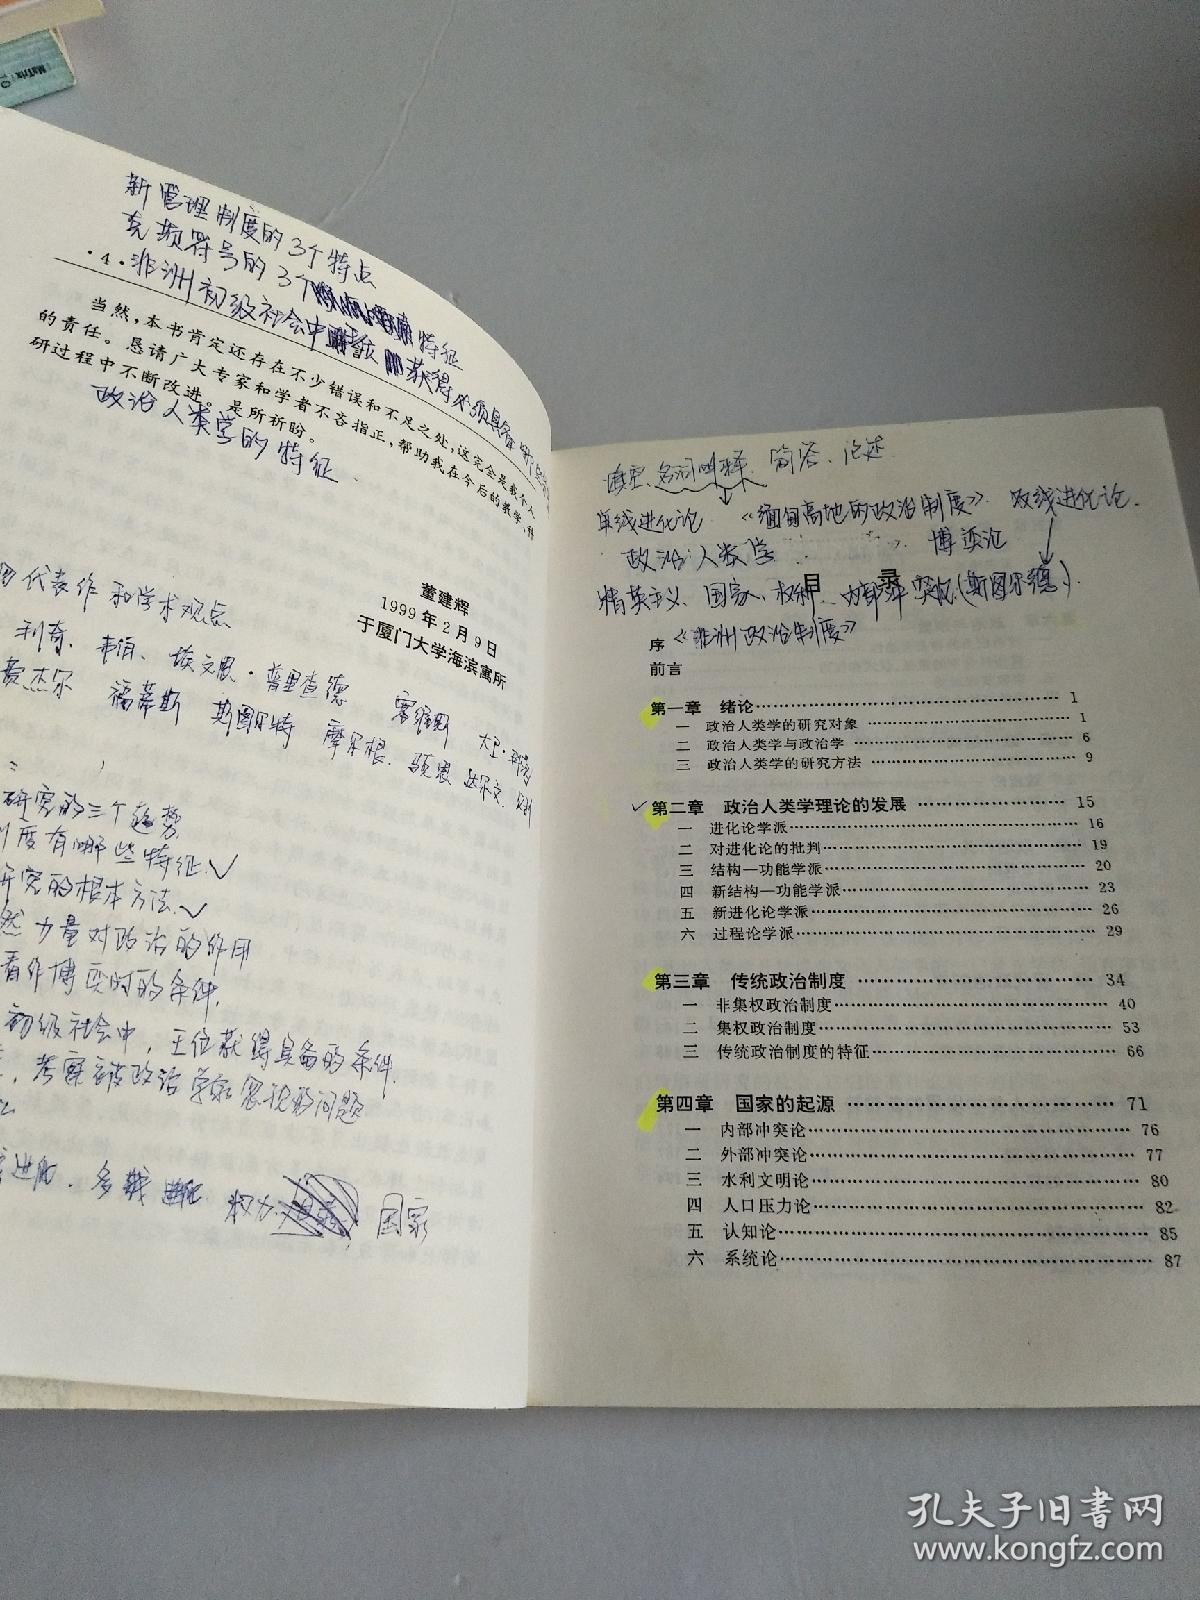 新管理制度的3个特点
克 符号的3个 特征
·4·
非洲初级社会中 王位 获得必须具备
当然,本书肯定还存在不少错误和不足之处,这完全是我个人
的责任。恳请广大专家和学者不吝指正,帮助我在今后的教学、科
研过程中不断改进。是所祈盼。
政治人类学的特征
董建辉
1999年2月9日
于厦门大学海滨寓所
代表作和学术观点
利奇、韦伯、埃文思·普里查德
费杰尔 福蒂斯 斯图尔特 摩尔根、
研究的三个趋势
度有哪些特征✓
研究的根本方法✓
然力量对政治的作用
看作博弈时的条件,
初级社会中,王位获得具备的条件.
考察 政治 问题
进化. 多线进化 权力 国家
填空、名词解释、简答、论述
单线进化论 《缅甸高地的政治制度》. 双线进化论.
政治人类学 博弈论
精英主义、国家、权利、内部 突
(斯图尔德).
目录
《非洲政治制度》
序
前言
第一章 绪论 1
一 政治人类学的研究对象 1
二 政治人类学与政治学 6
三 政治人类学的研究方法 9
✓第二章 政治人类学理论的发展 15
一 进化论学派 16
二 对进化论的批判 19
三 结构—功能学派 20
四 新结构—功能学派 23
五 新进化论学派 26
六 过程论学派 29
第三章 传统政治制度 34
一 非集权政治制度 40
二 集权政治制度 53
三 传统政治制度的特征 66
第四章 国家的起源 71
一 内部冲突论 76
二 外部冲突论 77
三 水利文明论 80
四 人口压力论 82
五 认知论 85
六 系统论 87
孔夫子旧书网
www.kongfz.com